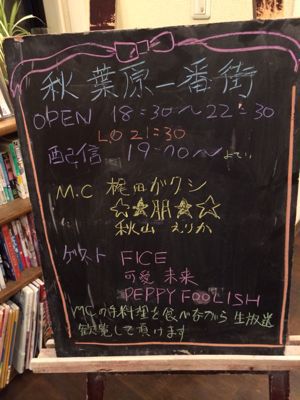 秋葉原一番街
OPEN 18:30〜22:30
LO 21:30
配信 19:00〜よてい
M.C 梶田ガクシ
☆☆朋☆☆
秋山 えりか
ゲスト FICE
可愛 未来
PEPPY FOOLISH
MCの手料理を食べながら生放送
観覧して頂けます